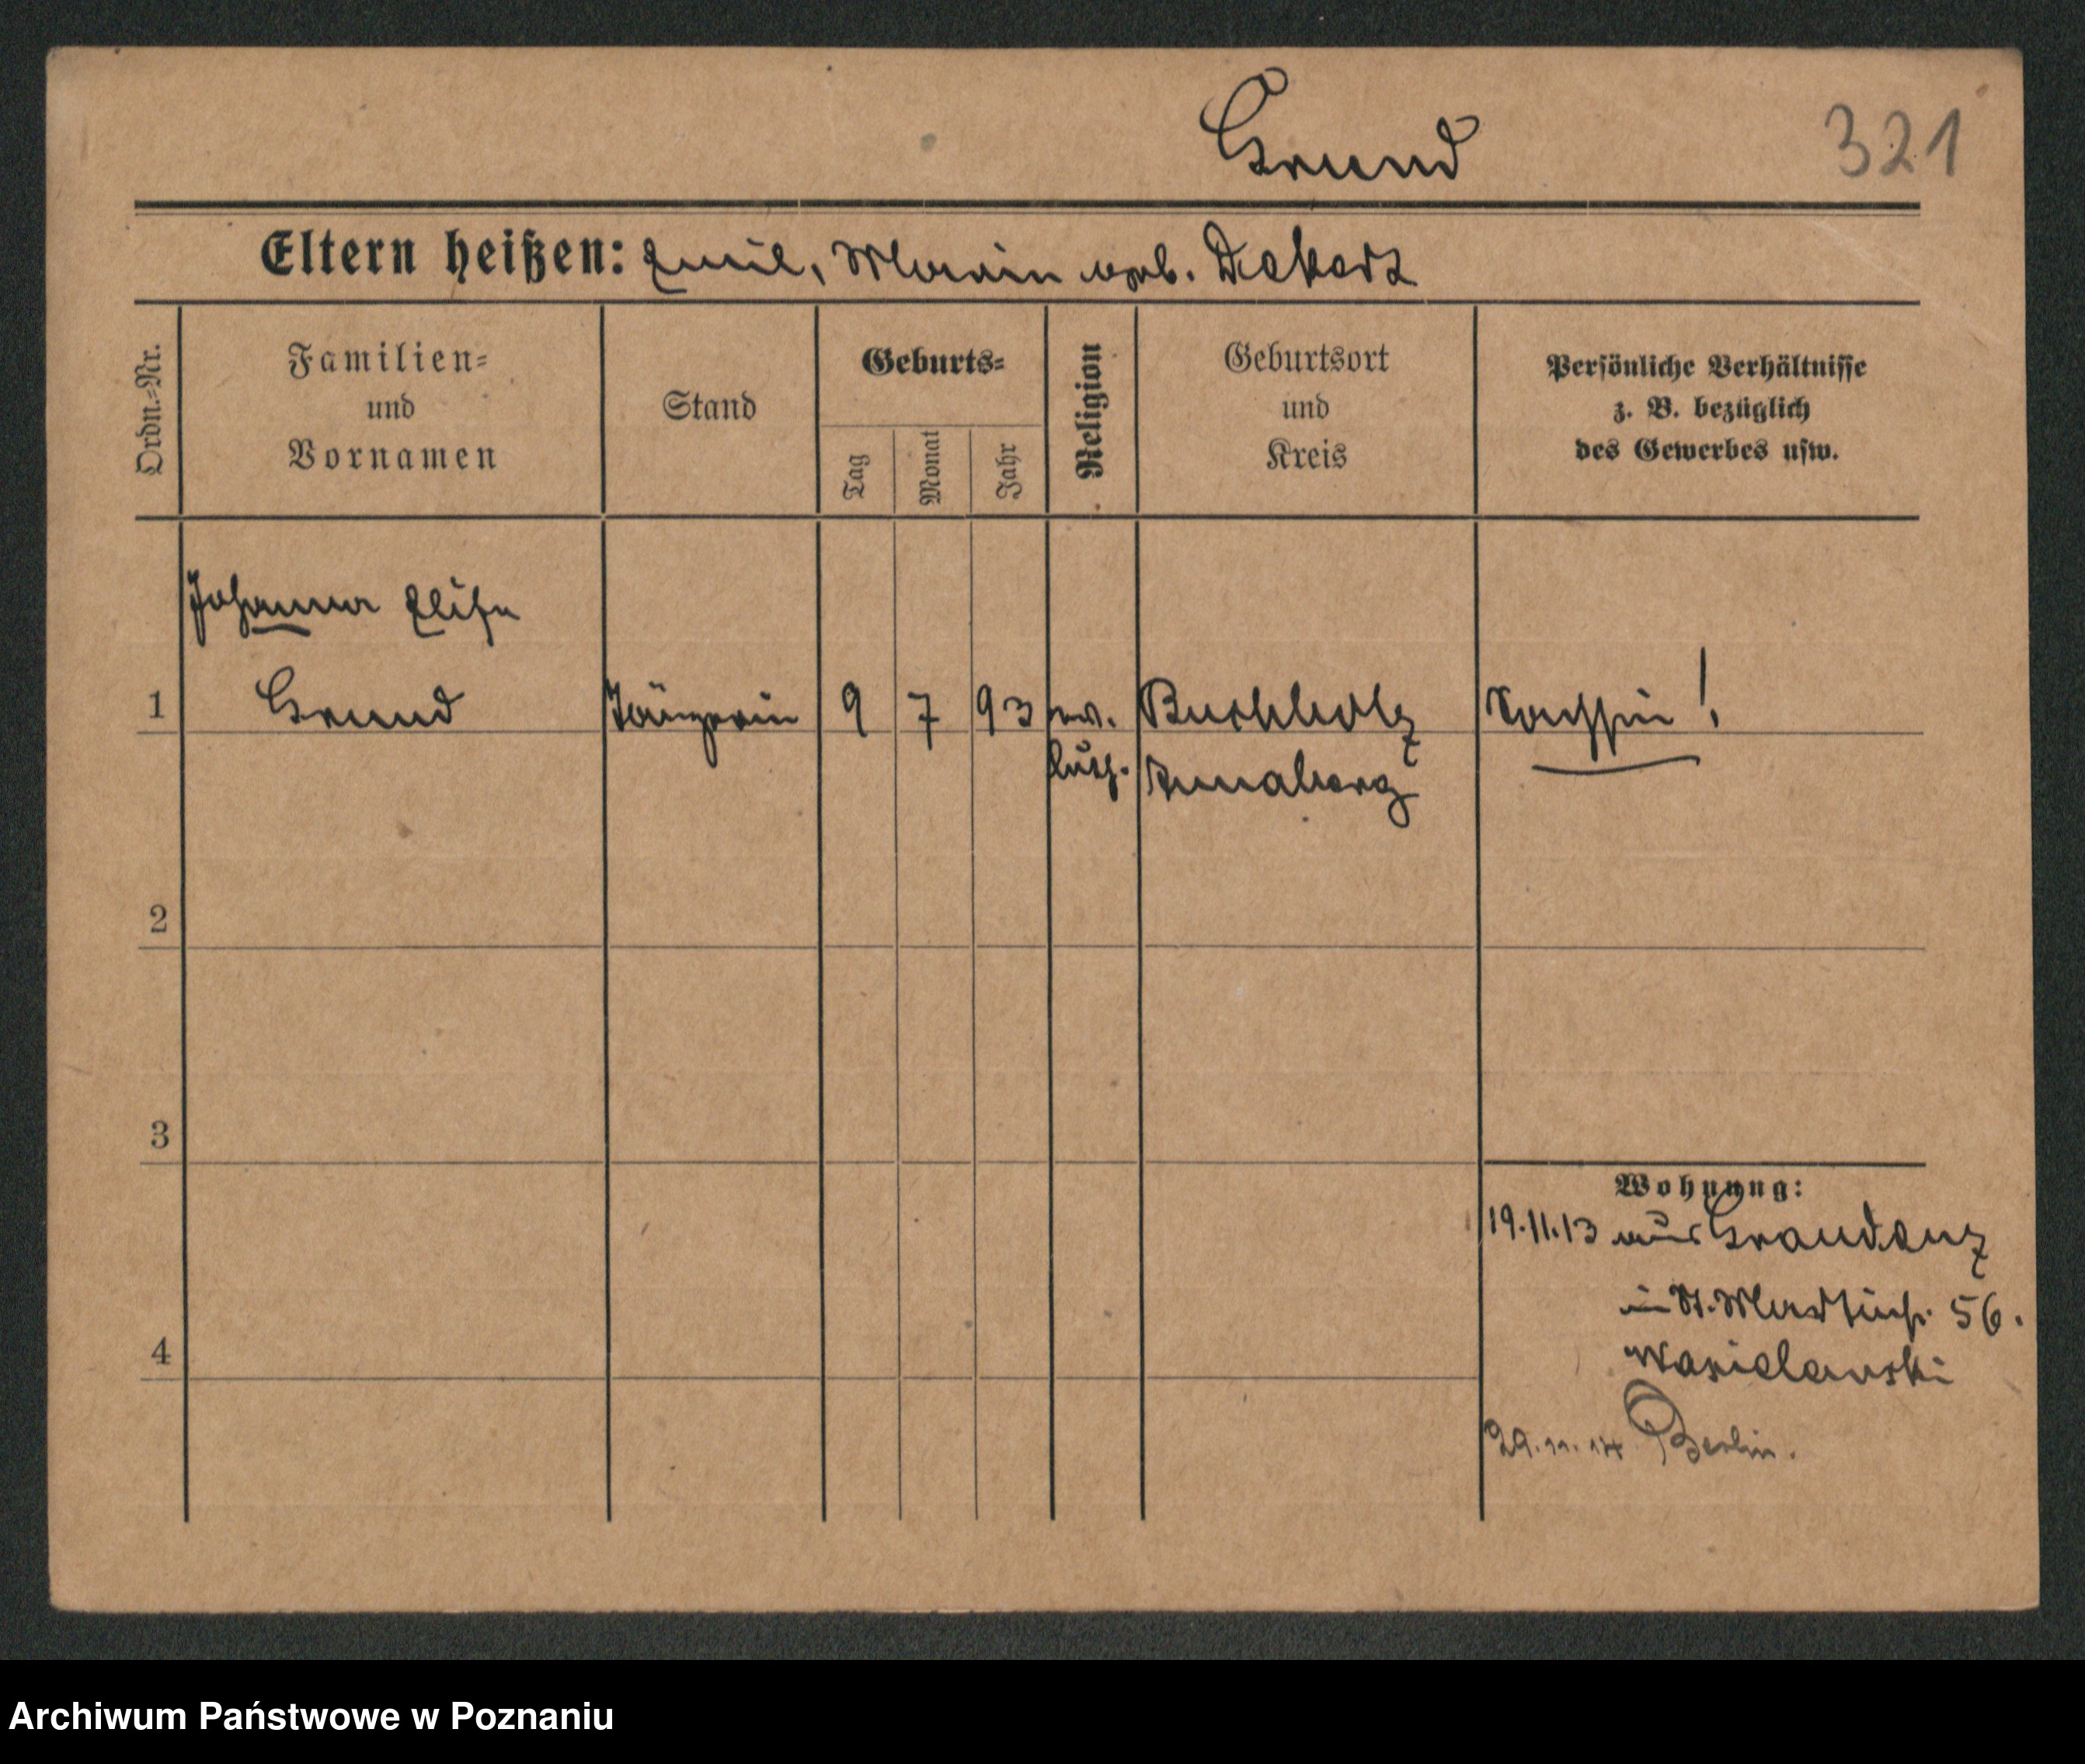 Grund
321
Eltern heißen: Emil, Marie geb. Dekert
Ordn.-Nr.
Familien-
und
Vornamen
Stand
Geburts-
Tag
Monat
Jahr
Religion
Geburtsort
und
Kreis
Persönliche Verhältnisse
z. B. bezüglich
des Gewerbes usw.
Johanna Elise
1 Grund Sängerin 9 7 93 ev. Buchholz Sachsen!
luth. Annaberg
2
3
Wohnung:
19.11.13 aus Graudenz
in St. Martinstr. 56.
4
29.11.14 Berlin.
Archiwum Państwowe w Poznaniu